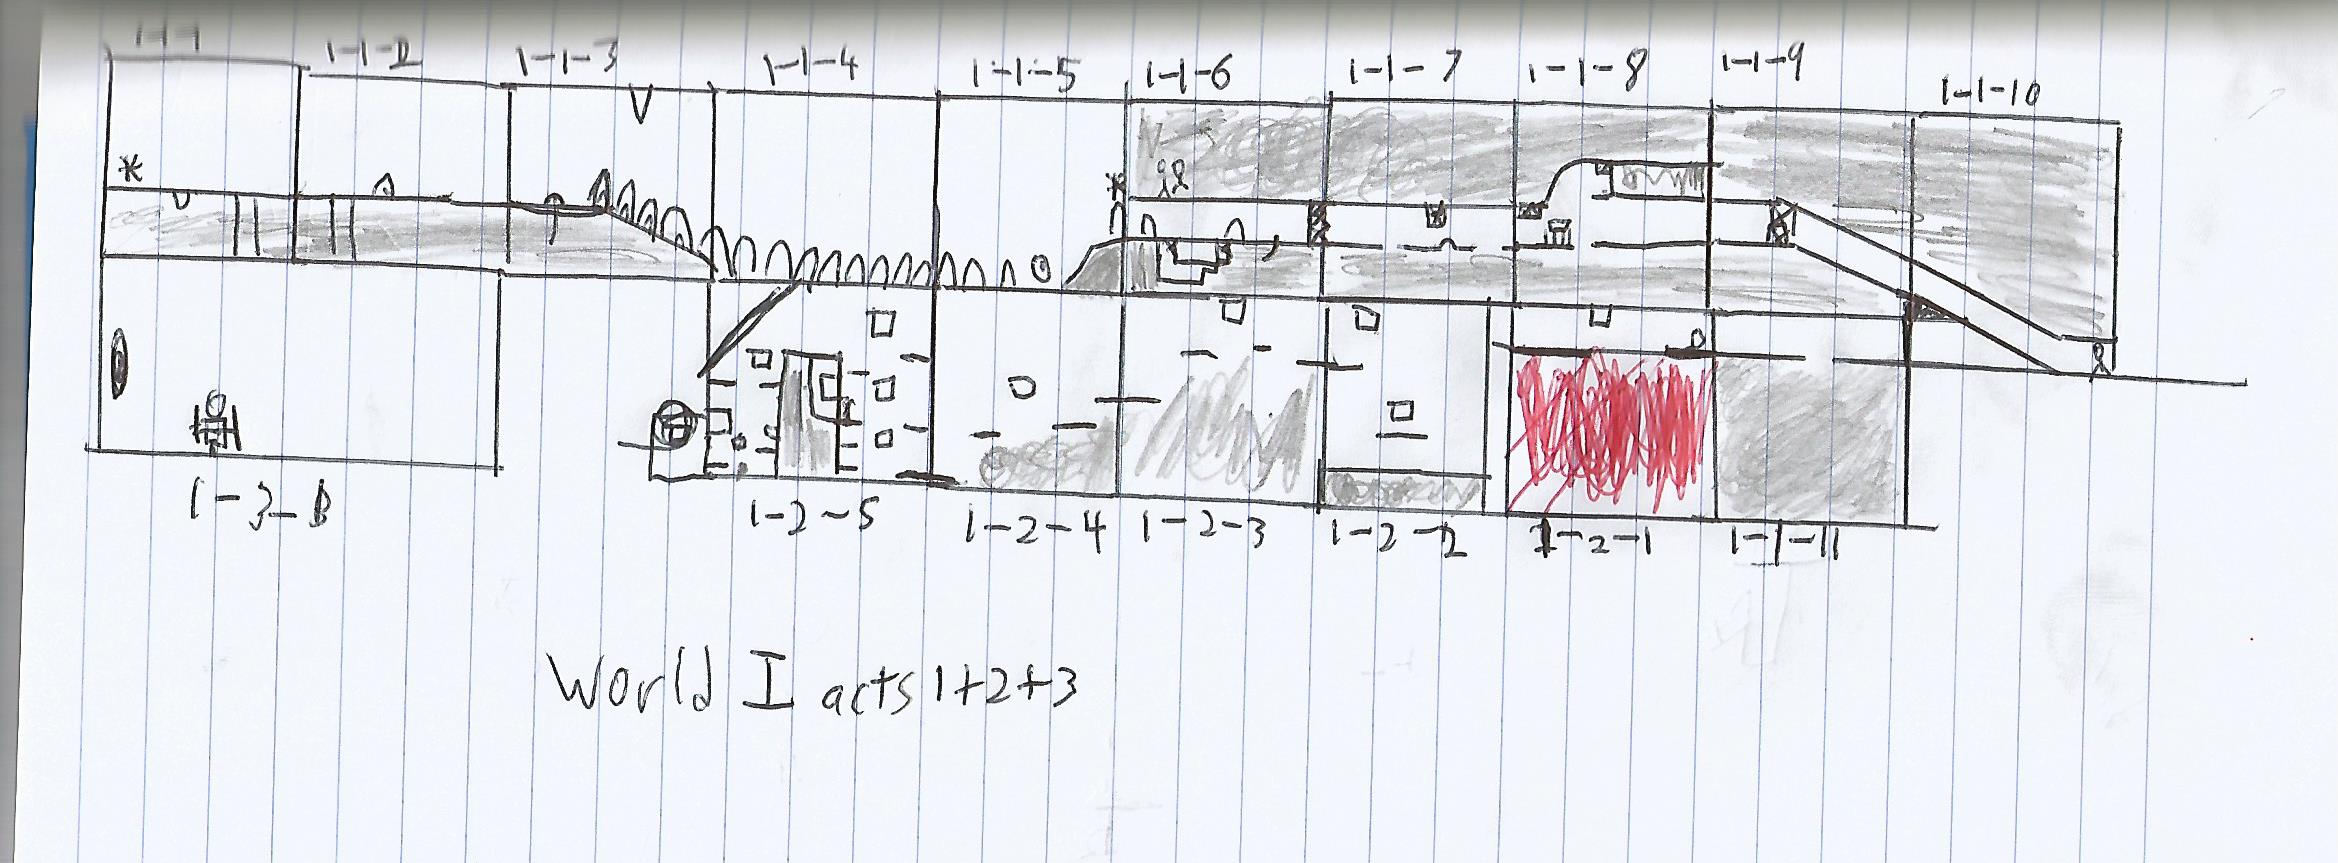 1-1-2 1-1-3 1-1-4 1-1-5 1-1-6 1-1-7 1-1-8 1-1-9 1-1-10
1-3-B 1-2-5 1-2-4 1-2-3 1-2-2 1-2-1 1-1-11
World I acts 1+2+3